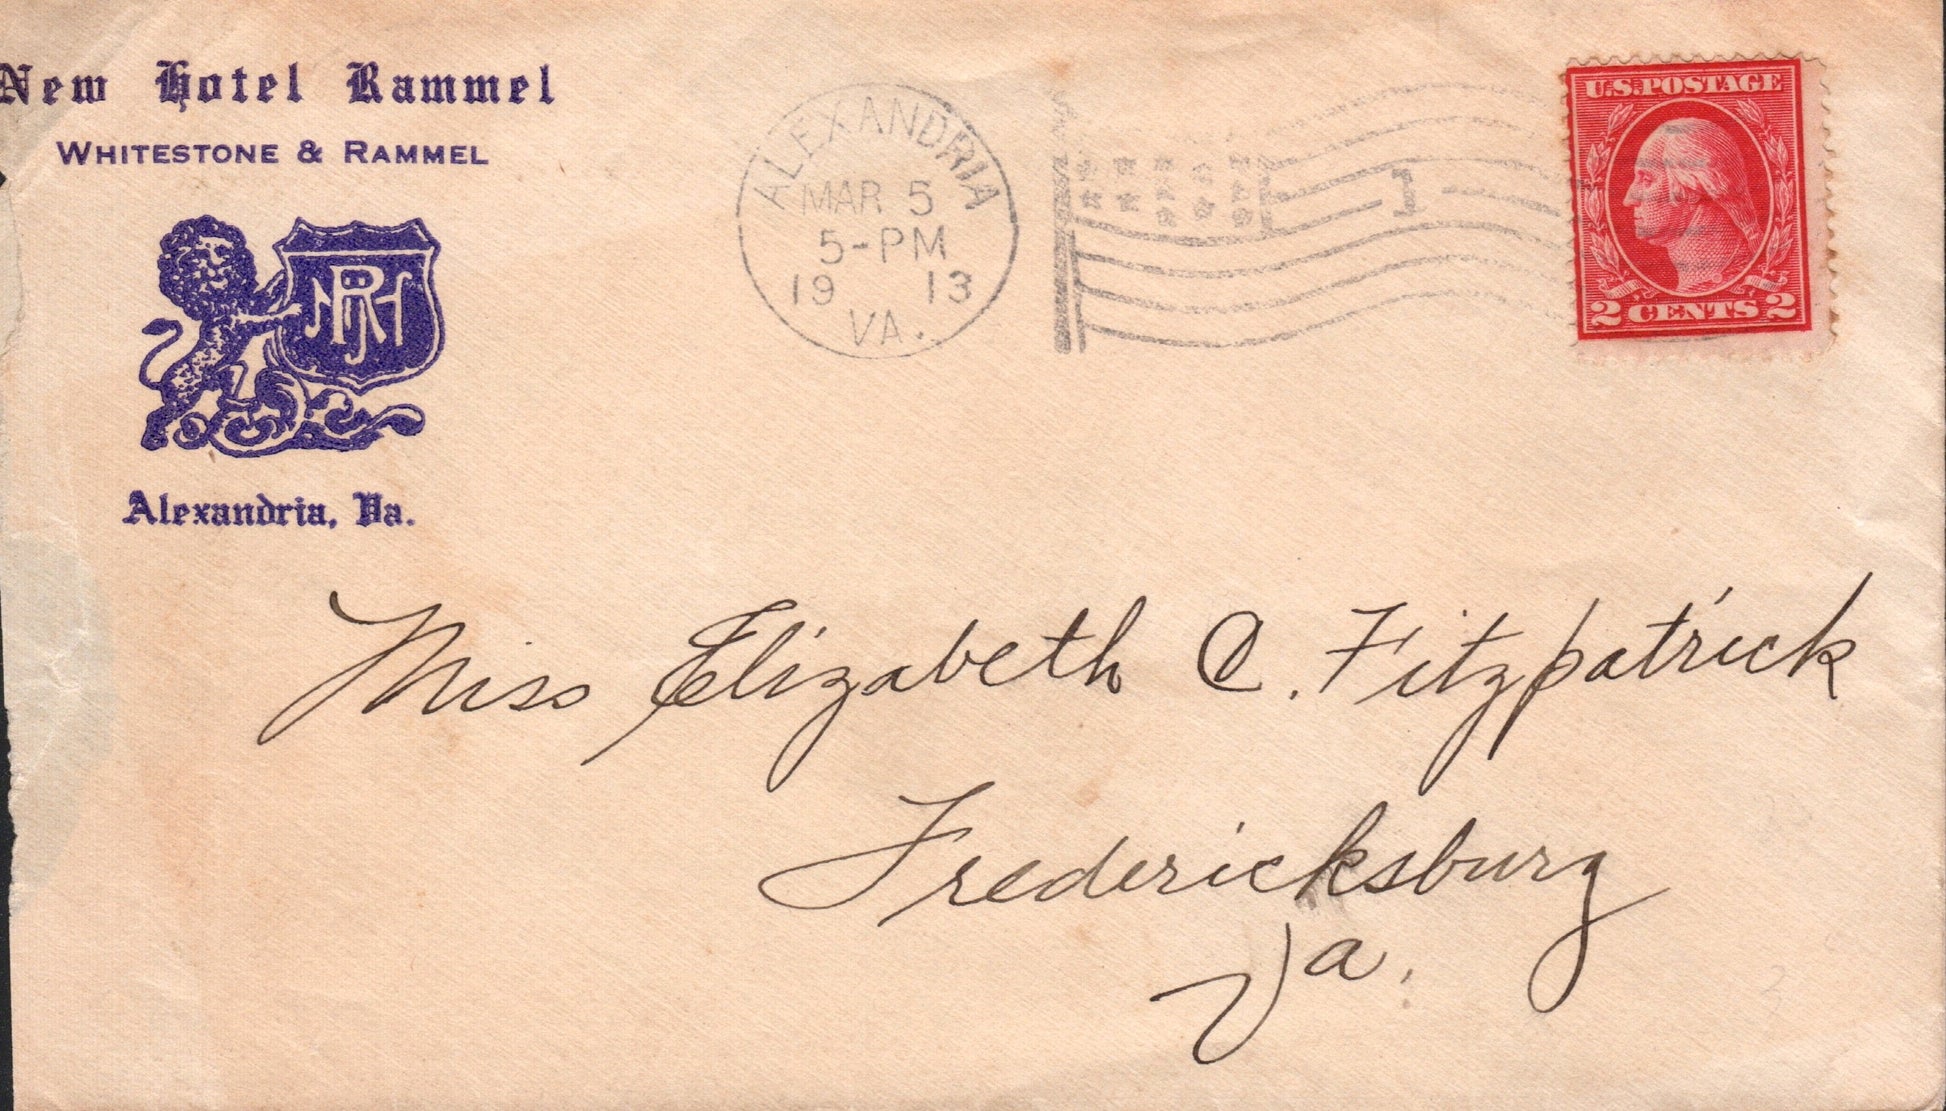 New Hotel Rammel
WHITESTONE & RAMMEL
NRH
Alexandria, Va.
ALEXANDRIA
MAR 5
5-PM
19 13
VA.
1
U.S. POSTAGE
2 CENTS 2
Miss Elizabeth C. Fitzpatrick
Fredericksburg
Va.